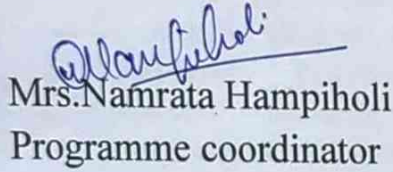 Mrs.Namrata Hampiholi
Programme coordinator